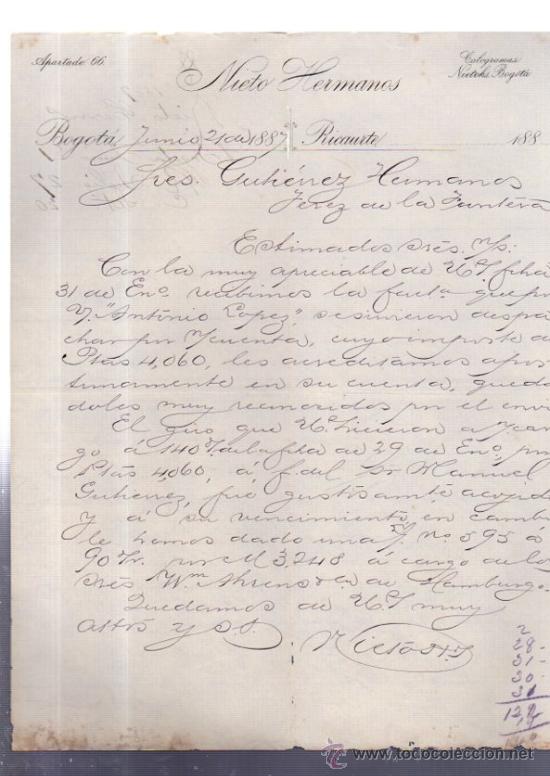 Apartado 66.
Calogramas
Nietohs. Bogotá
Nieto Hermanos
Bogotá, Junio 21 de 1887 Ricaurte 188
Sres. Gutiérrez Hermanos
Jerez de la Frontera
Estimados Srés. Ms:
Con la muy apreciable de Us fcha
31 de Eno. recibimos la fact.
V. "Antonio Lopez" se sirvieron despa
char por n/cuenta, cuyo importe de
Ptas 4,060, les acreditamos opor
tunamente en su cuenta, queda
doles muy reconocidos por el env
El giro que Us. hicieron a n/car
go á 140 de la fcha de 29 de Eno. por
Ptas 4,060, á f. del Sr Manuel
Gutiérrez, fué gustosamte acojido
y á su vencimiento en cambio
le hemos dado una no 595 á
90 por M 3,248 á cargo de los
Srés Wm Ahrens & Co. de Hamburgo.
Quedamos de Us muy
attos y S. S.
Nieto Hs
2
28-
31-
30-
31
122
todocoleccion
www.todocoleccion.net